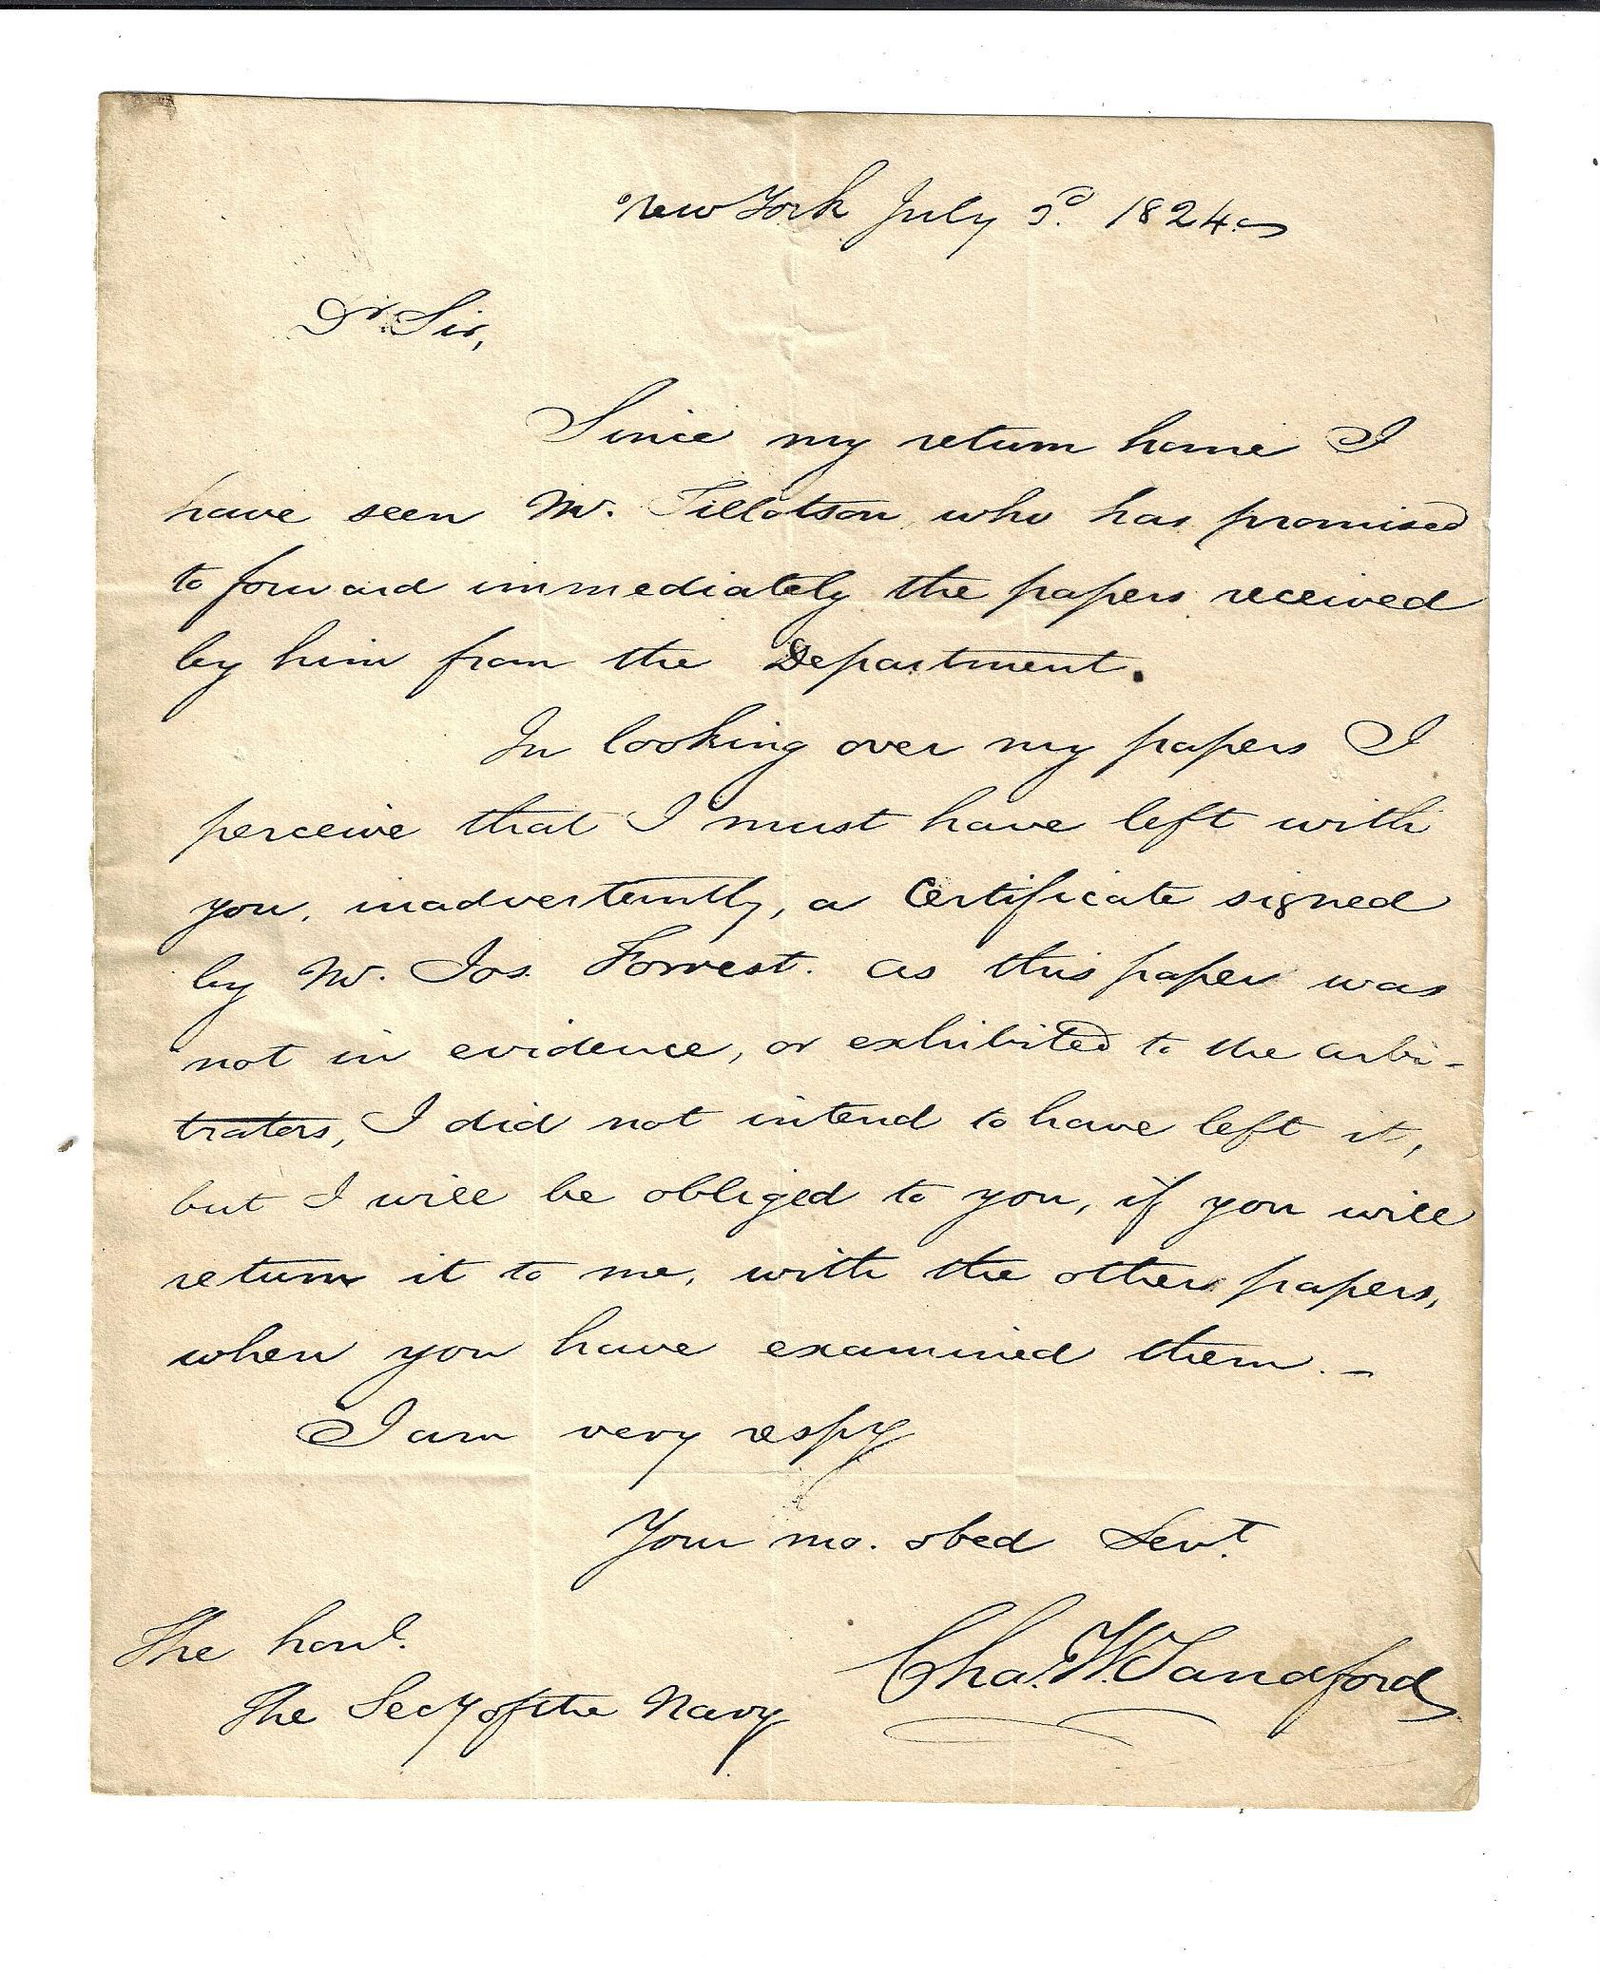 New York July 3d. 1824.
Dr Sir,
Since my return home I
have seen Mr. Tillotson, who has promised
to forward immediately the papers received
by him from the Department.
In looking over my papers I
perceive that I must have left with
you, inadvertently, a Certificate signed
by Mr. Jos. Forrest. as this paper was
not in evidence, or exhibited to the arbi-
trators, I did not intend to have left it,
but I will be obliged to you, if you will
return it to me, with the other papers,
when you have examined them. -
I am very respy
Your mo. obed Servt.
Chas. W. Sandford
The honl.
The Secy of the Navy